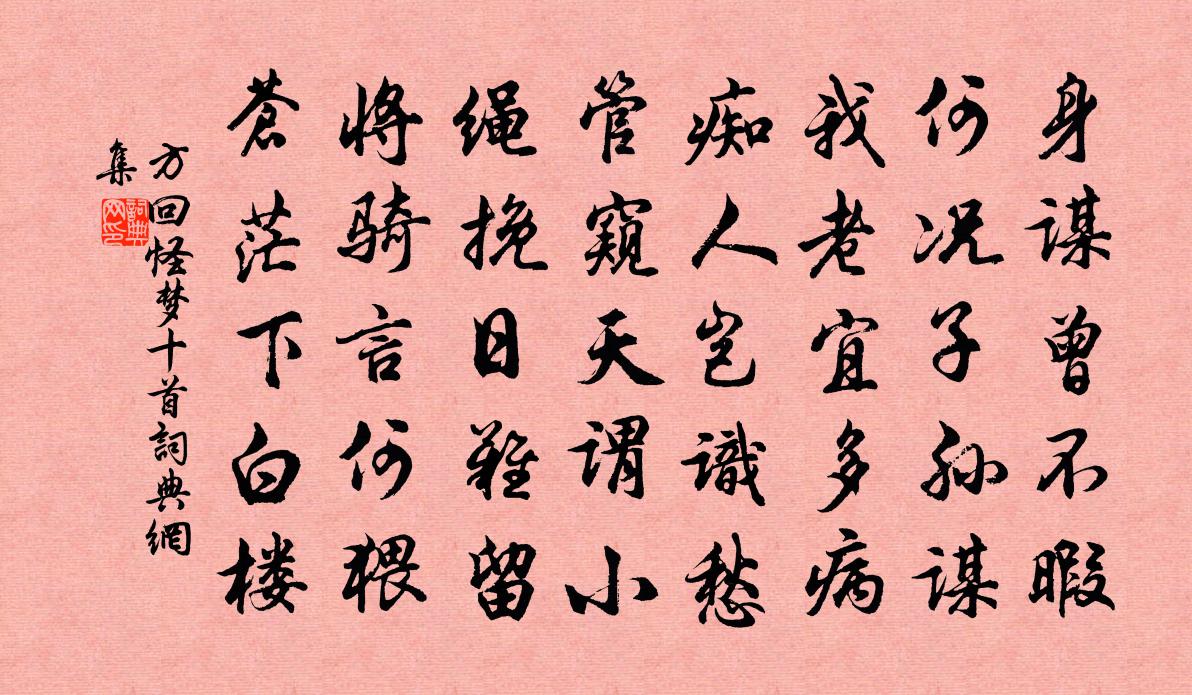 身谋曾不暇
何况子孙谋
我老宜多病
痴人岂識愁
管窥天謂小
绳挽日難留
将骑言何猥
蒼茫下白楼
方回怪梦十首詞典網
集
詞典
网印